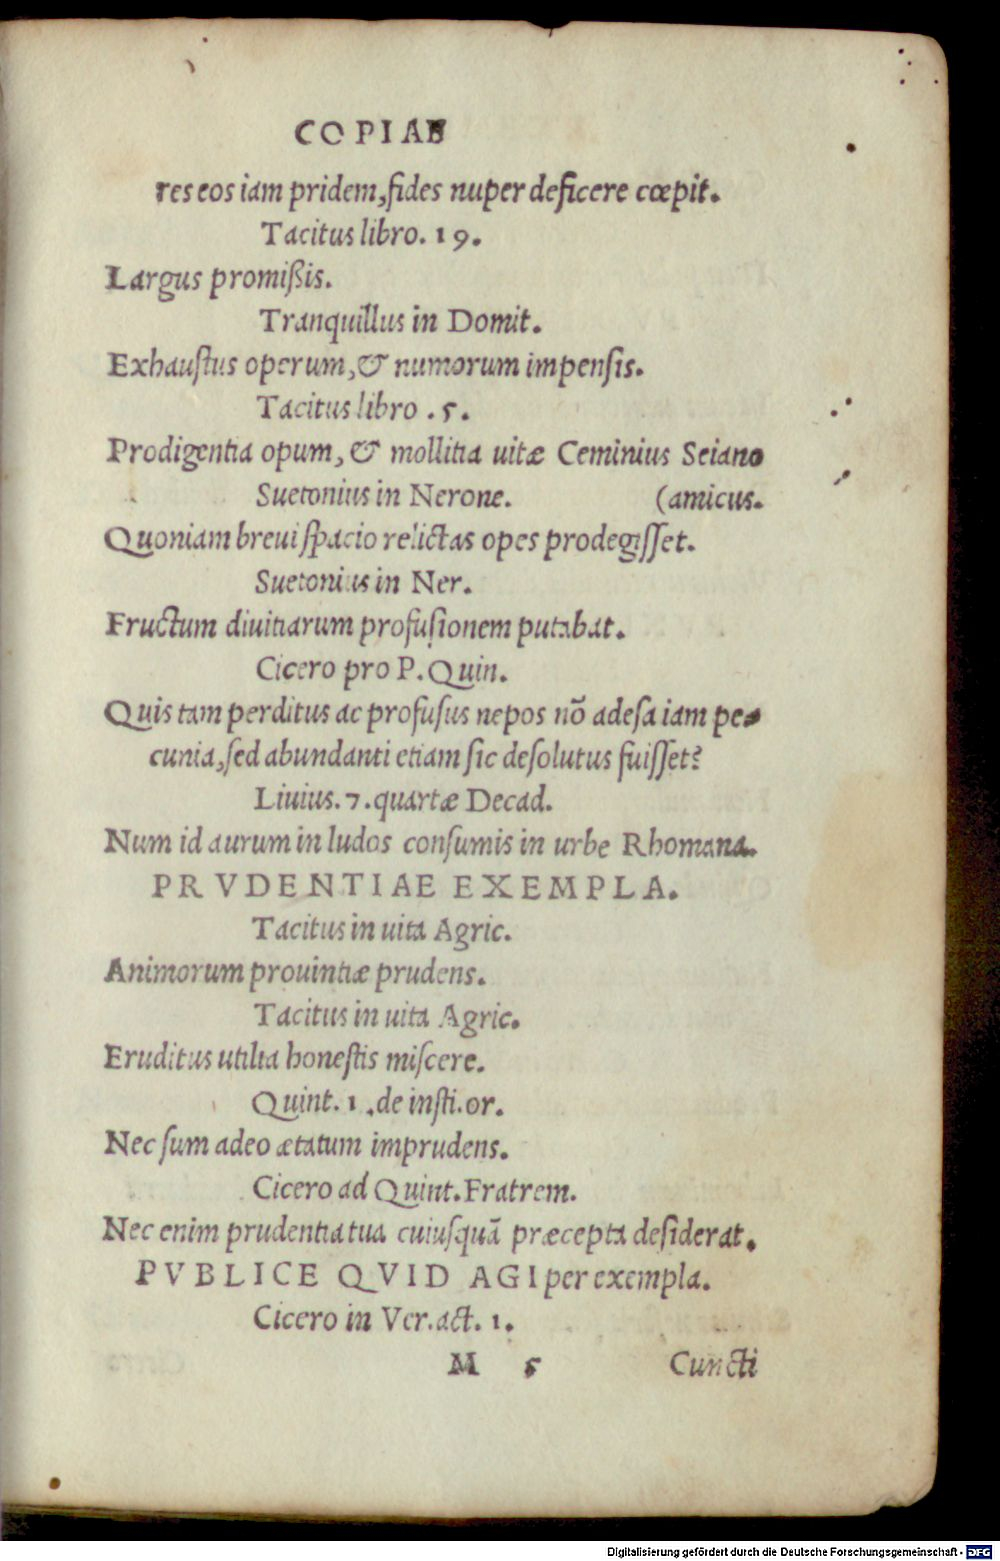 COPIAE
res eos iam pridem, fides nuper deficere cœpit.
Tacitus libro. 19.
Largus promißis.
Tranquillus in Domit.
Exhaustus operum, & numorum impensis.
Tacitus libro .5.
Prodigentia opum, & mollitia uitæ Ceminius Seiano
Suetonius in Nerone. (amicus.
Quoniam breui spacio relictas opes prodegisset.
Suetonius in Ner.
Fructum diuitiarum profusionem putabat.
Cicero pro P. Quin.
Quis tam perditus ac profusus nepos nō adesa iam pe-
cunia, sed abundanti etiam sic desolutus fuisset?
Liuius. 7. quartæ Decad.
Num id aurum in ludos consumis in urbe Rhomana.
PRVDENTIAE EXEMPLA.
Tacitus in uita Agric.
Animorum prouintiæ prudens.
Tacitus in uita Agric.
Eruditus utilia honestis miscere.
Quint. 1. de insti. or.
Nec sum adeo ætatum imprudens.
Cicero ad Quint. Fratrem.
Nec enim prudentia tua cuiusquā præcepta desiderat.
PVBLICE QVID AGI per exempla.
Cicero in Ver. act. 1.
M 5 Cuncti
Digitalisierung gefördert durch die Deutsche Forschungsgemeinschaft - DFG